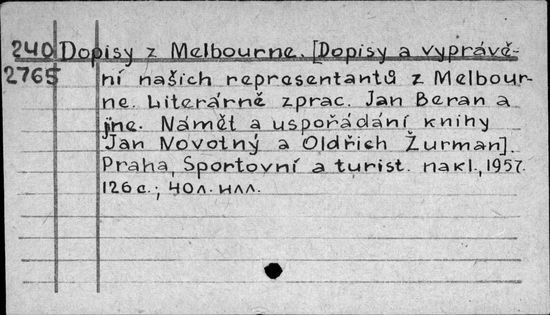 240 Dopisy z Melbourne. [Dopisy a vyprávě-
2765 ní našich representantů z Melbour-
ne. Literárně zprac. Jan Beran a
jne. Námět a uspořádání knihy
Jan Novotný a Oldřich Žurman].
Praha, Sportovní a turist. nakl., 1957.
126 с.; 40 л. илл.